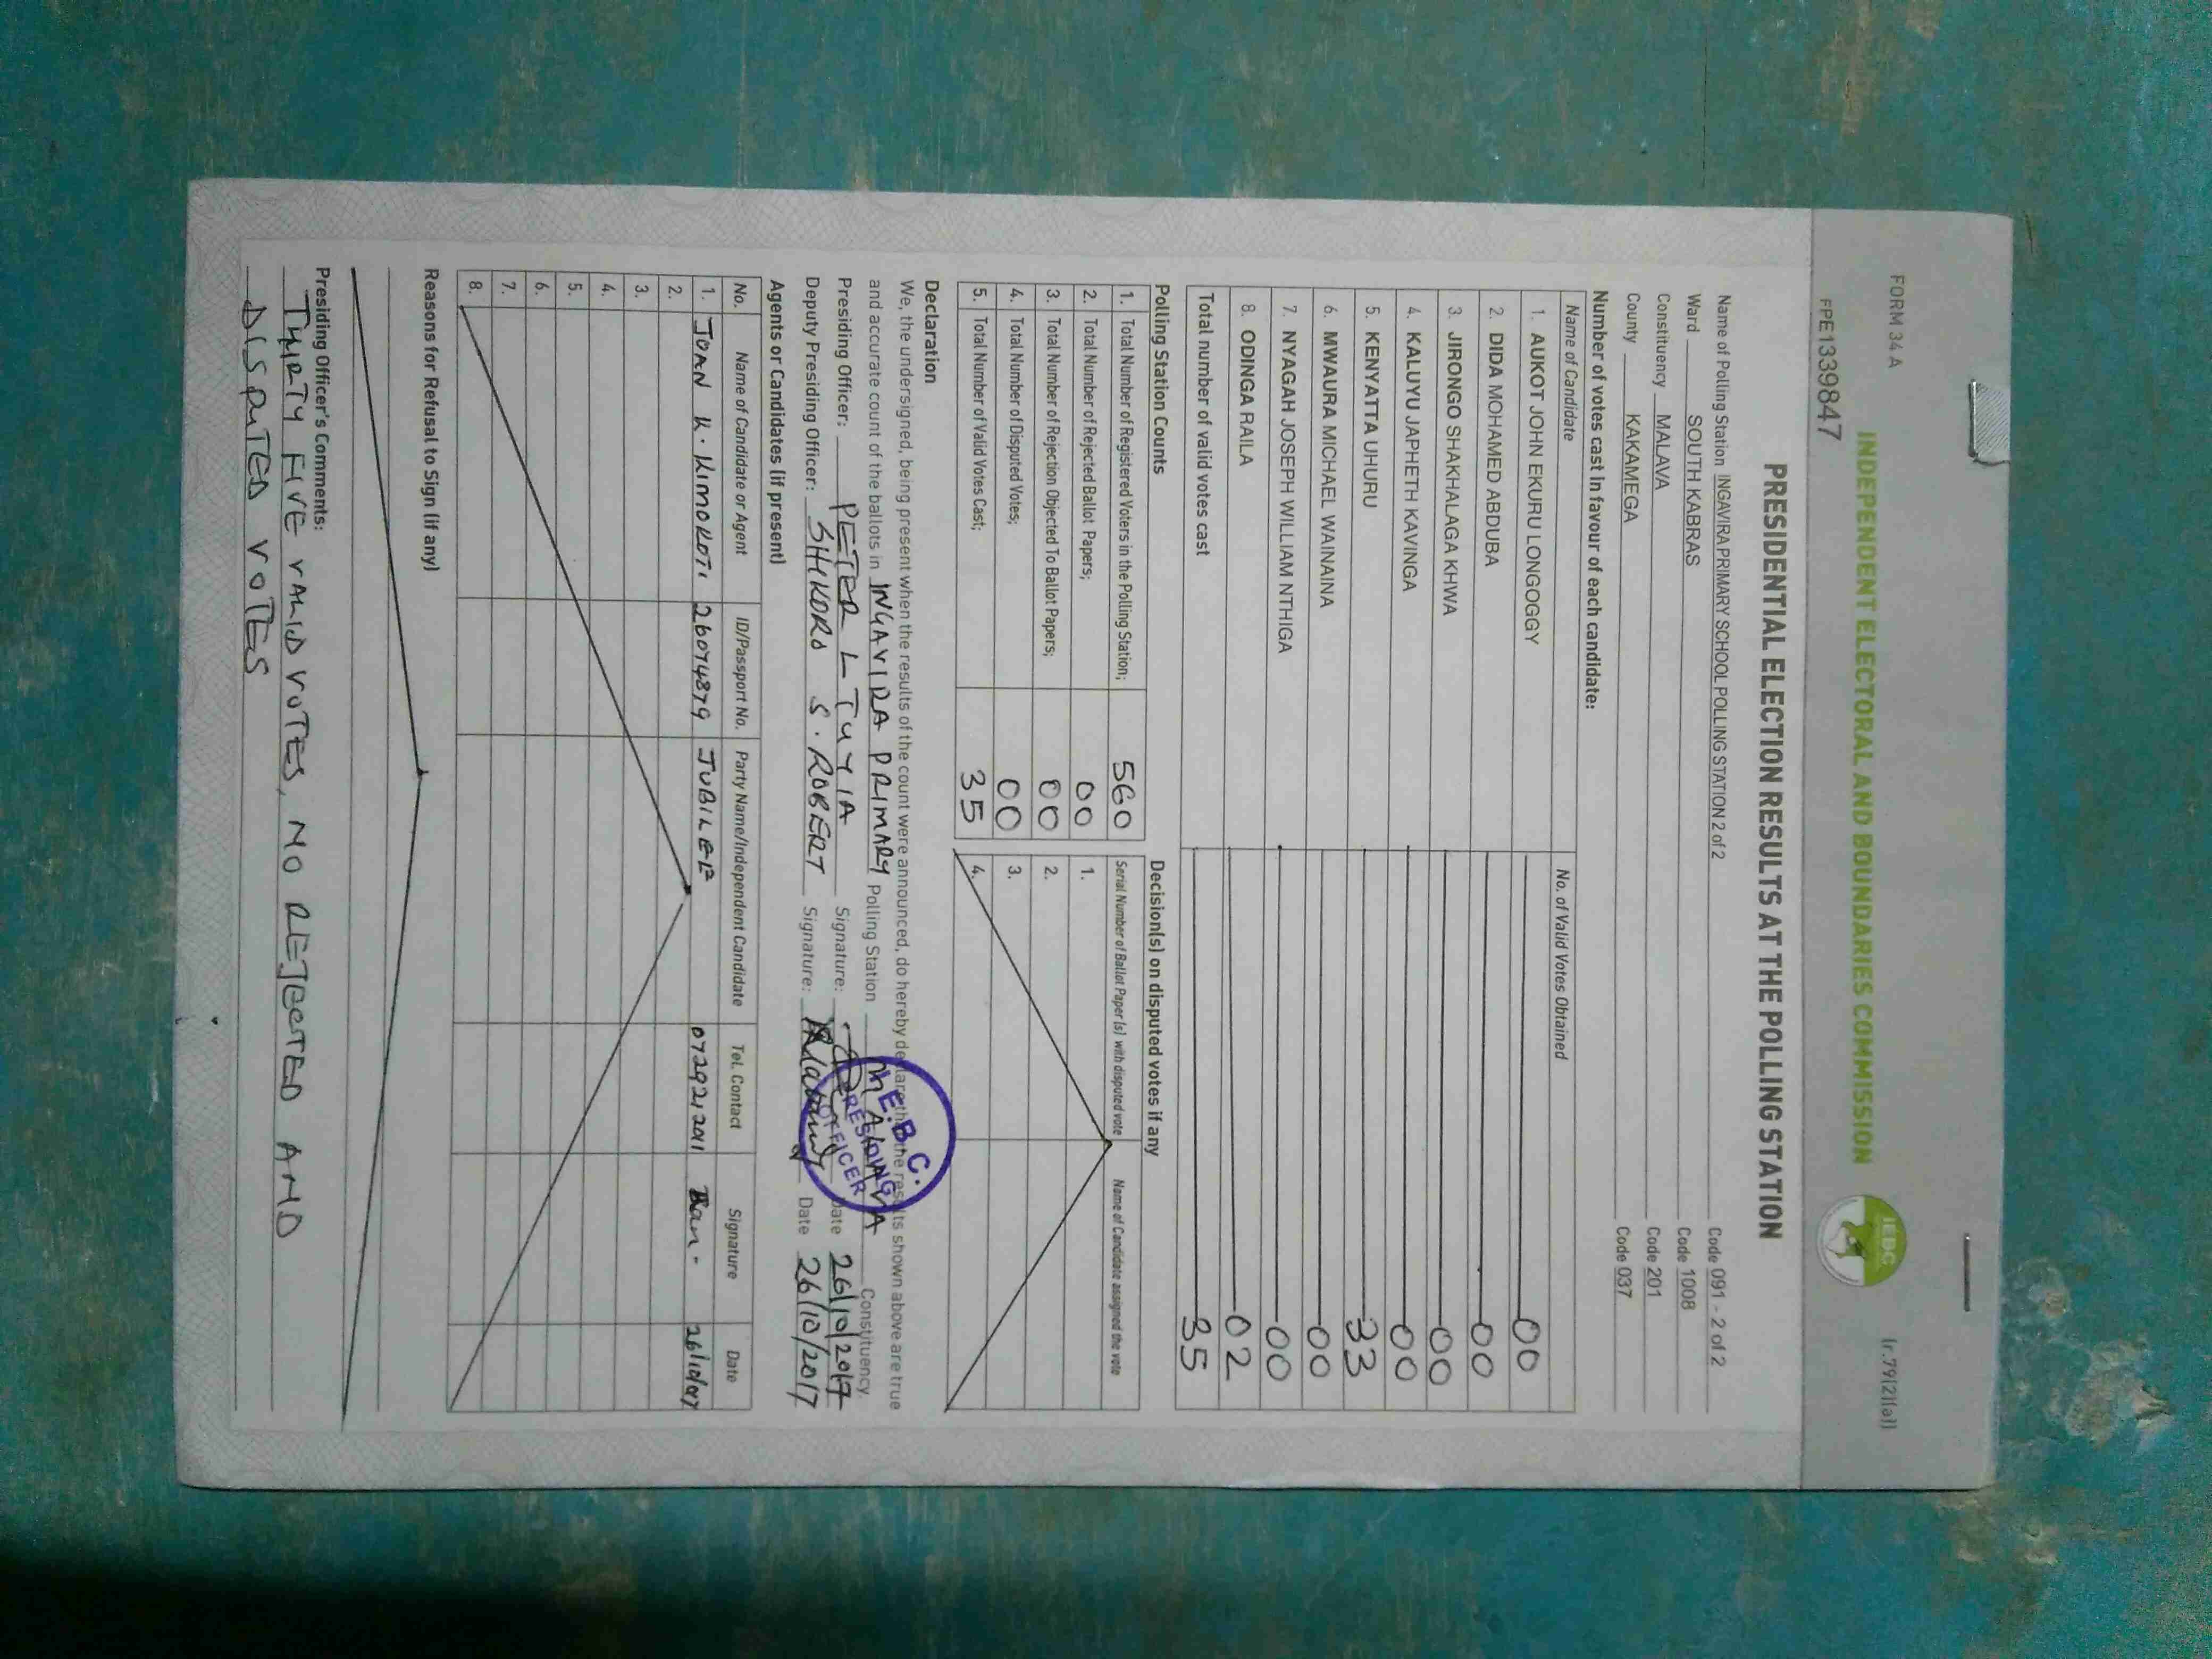 FORM 34 A
(r.79(2)(a))
INDEPENDENT ELECTORAL AND BOUNDARIES COMMISSION
IEBC
PPE1339847
PRESIDENTIAL ELECTION RESULTS AT THE POLLING STATION
Name of Polling Station INGAVIRA PRIMARY SCHOOL POLLING STATION 2 of 2 Code 091 - 2 of 2
Ward SOUTH KABRAS Code 1008
Constituency MALAVA Code 201
County KAKAMEGA Code 037
Number of votes cast in favour of each candidate:
Name of Candidate No. of Valid Votes Obtained
1. AUKOT JOHN EKURU LONGOGGY 00
2. DIDA MOHAMED ABDUBA 00
3. JIRONGO SHAKHALAGA KHWA 00
4. KALUYU JAPHETH KAVINGA 00
5. KENYATTA UHURU 33
6. MWAURA MICHAEL WAINAINA 00
7. NYAGAH JOSEPH WILLIAM NTHIGA 00
8. ODINGA RAILA 02
Total number of valid votes cast 35
Polling Station Counts Decision(s) on disputed votes if any
1. Total Number of Registered Voters in the Polling Station; 560 Serial Number of Ballot Paper (s) with disputed vote Name of Candidate assigned the vote
2. Total Number of Rejected Ballot Papers; 00 1.
3. Total Number of Rejection Objected To Ballot Papers; 00 2.
4. Total Number of Disputed Votes; 00 3.
5. Total Number of Valid Votes Cast; 35 4.
Declaration
We, the undersigned, being present when the results of the count were announced, do hereby declare that the results shown above are true
and accurate count of the ballots in INGAVIRA PRIMARY Polling Station MALAVA Constituency.
Presiding Officer: PETER L TUYIA Signature: Date 26/10/2017
Deputy Presiding Officer: SHIKORO S. ROBERT Signature: Date 26/10/2017
I.E.B.C.
PRESIDING
OFFICER
Agents or Candidates (if present)
No. Name of Candidate or Agent ID/Passport No. Party Name/Independent Candidate Tel. Contact Signature Date
1. JOAN K. KIMOKOTI 26074879 JUBILEE 0729212011
2.
3.
4.
5.
6.
7.
8.
Reasons for Refusal to Sign (if any)
Presiding Officer's Comments:
THIRTY FIVE VALID VOTES, NO REJECTED AND
DISPUTED VOTES